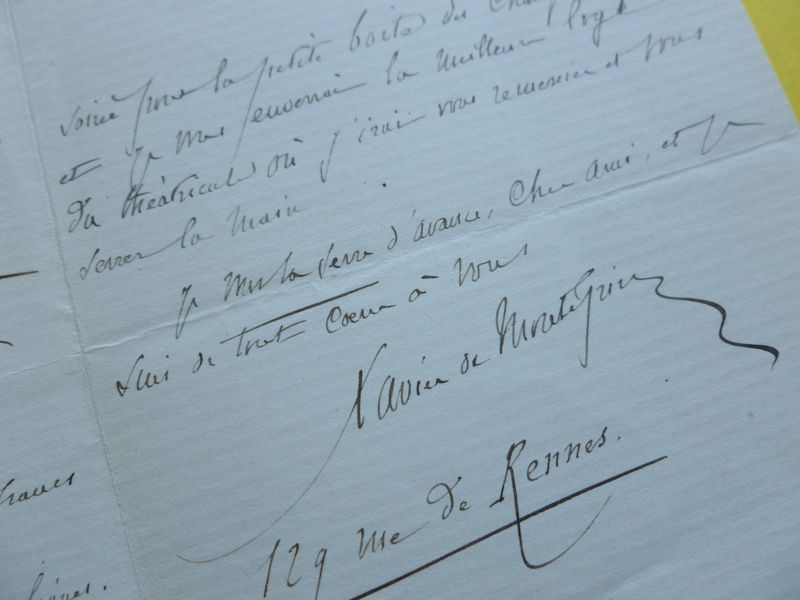 soirée pour la petite boite du
et je vous enverrai la meilleure loge
du théâtricule où j'irai vous remercier et vous
serrer la main.
Je vous la serre d'avance, cher ami, et je
suis de tout coeur à vous
Xavier de Montépin
129 rue de Rennes.